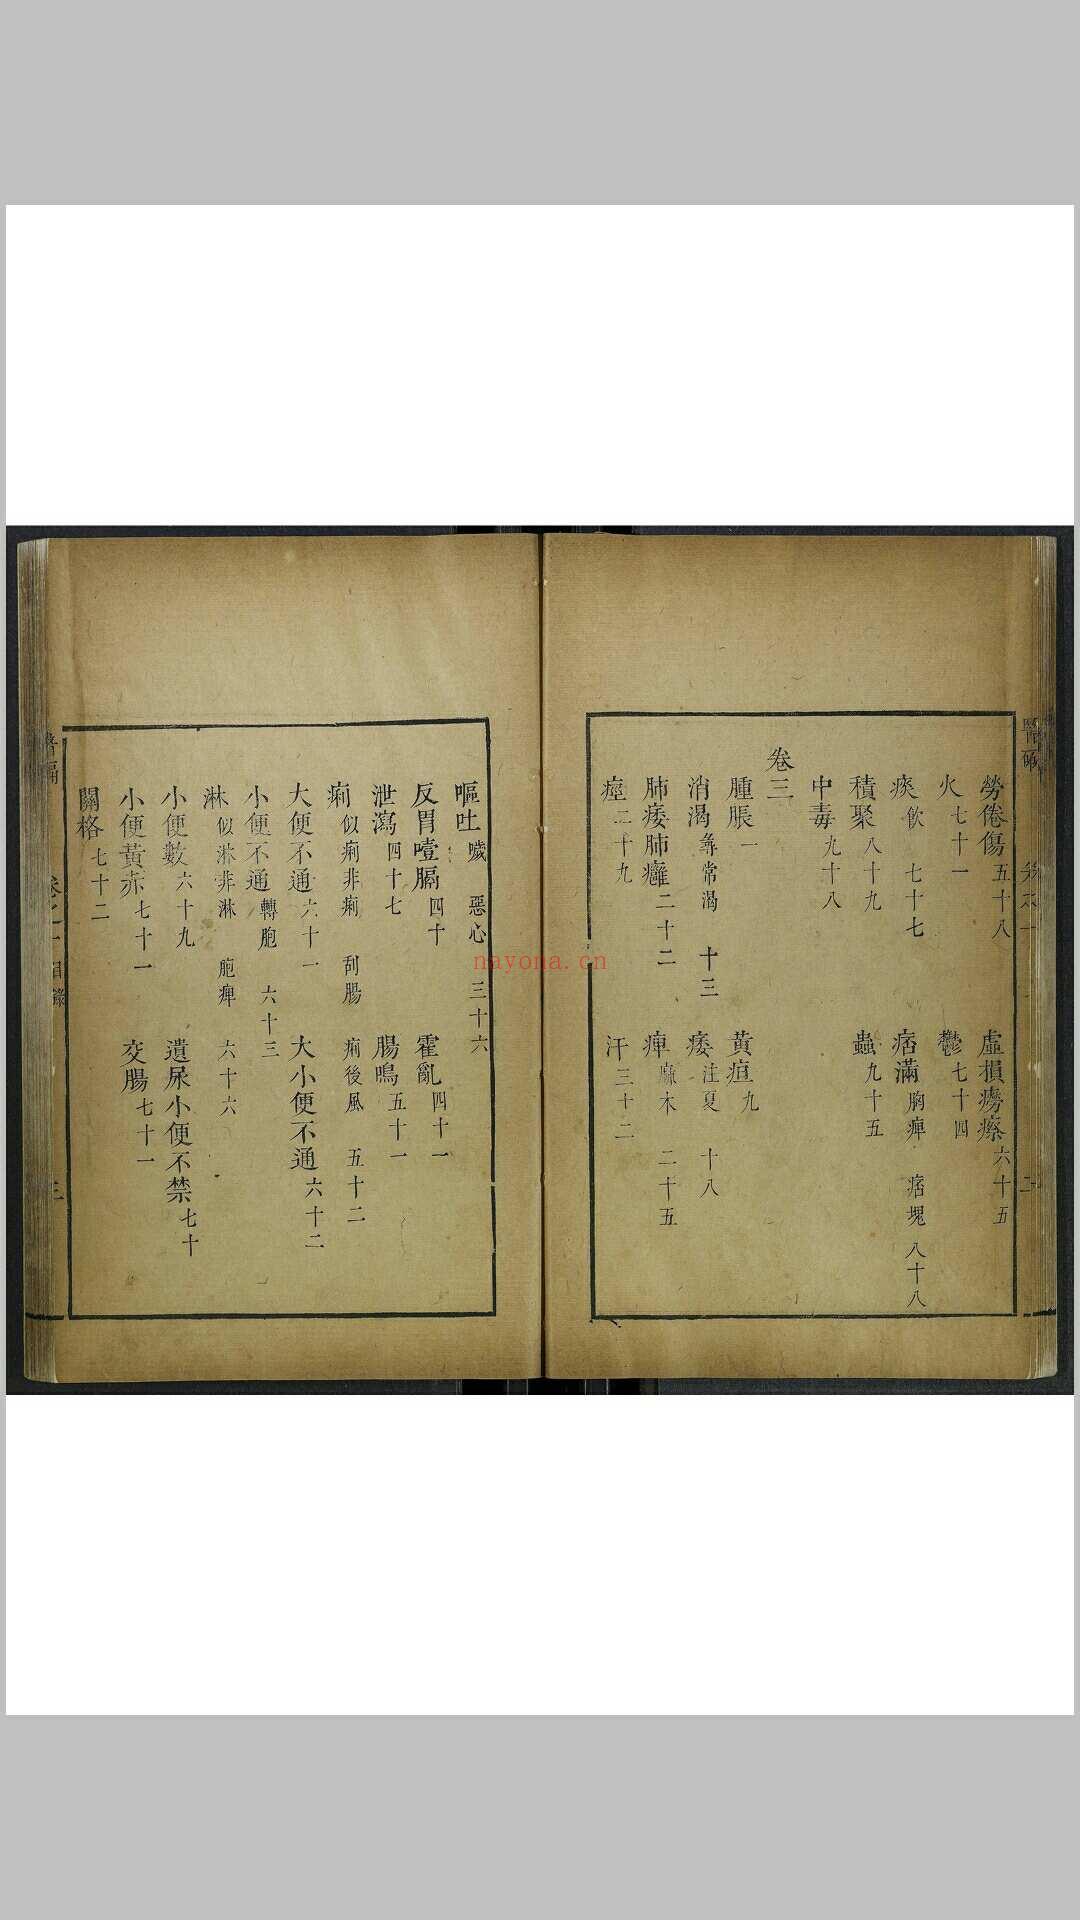 勞倦傷 五十八 虛損癆瘵 六十五
火 七十一 鬱 七十四
痰 飲 七十七 痞滿 胸痺 痞塊 八十八
積聚 八十九 蟲 九十五
中毒 九十八
卷三
腫脹 一 黃疸 九
消渴 彞常渴 十三 痿 注夏 十八
肺痿肺癰 二十二 痺 麻木 二十五
痙 二十九 汗 三十二
嘔吐 噦 惡心 三十六
反胃噎膈 四十 霍亂 四十一
泄瀉 四十七 腸鳴 五十一
痢 似痢非痢 刮腸 痢後風 五十二
大便不通 六十一 大小便不通 六十二
小便不通 轉胞 六十三
淋 似淋非淋 胞痺 六十六
小便數 六十九 遺尿小便不禁 七十
小便黃赤 七十一 交腸 七十一
關格 七十二
nayona.cn